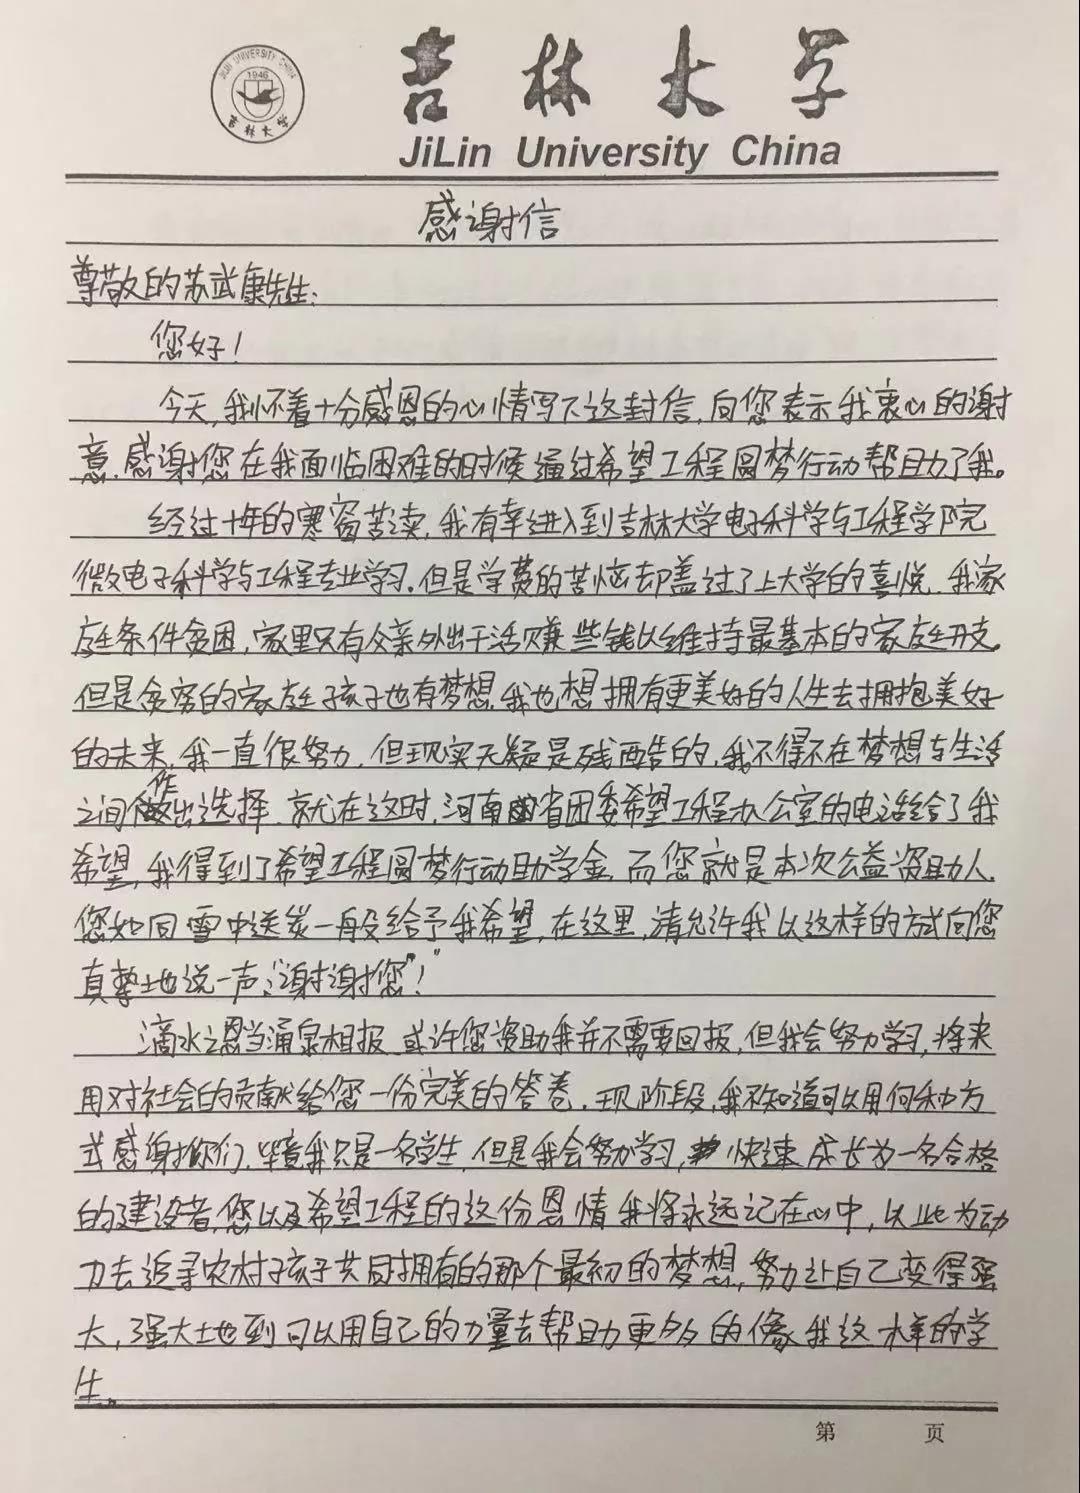 JILIN UNIVERSITY CHINA
1946
吉林大学
吉林大学
JiLin University China
感谢信
尊敬的苏武康先生:
您好!
今天,我怀着十分感恩的心情写下这封信,向您表示我衷心的谢
意,感谢您在我面临困难的时候通过希望工程圆梦行动帮助了我。
经过十年的寒窗苦读,我有幸进入到吉林大学电子科学与工程学院
微电子科学与工程专业学习。但是学费的苦恼却盖过了上大学的喜悦,我家
庭条件贫困,家里只有父亲外出干活赚些钱以维持最基本的家庭开支。
但是贫穷的家庭孩子也有梦想,我也想拥有更美好的人生去拥抱美好
的未来,我一直很努力,但现实无疑是残酷的,我不得不在梦想与生活
之间作出选择,就在这时,河南省团委希望工程办公室的电话给了我
希望,我得到了希望工程圆梦行动助学金,而您就是本次公益资助人.
您如同雪中送炭一般给予我希望,在这里,请允许我以这样的方式向您
真挚地说一声:“谢谢您”!
滴水之恩当涌泉相报,或许您资助我并不需要回报,但我会努力学习,将来
用对社会的贡献给您一份完美的答卷.现阶段,我不知道可以用何种方
式感谢你们,毕竟我只是一名学生,但是我会努力学习,快速成长为一名合格
的建设者,您以及希望工程的这份恩情我将永远记在心中,以此为动
力去追寻农村孩子共同拥有的那个最初的梦想,努力让自己变得强
大,强大地到可以用自己的力量去帮助更多的像我这样的学
生。
第 页